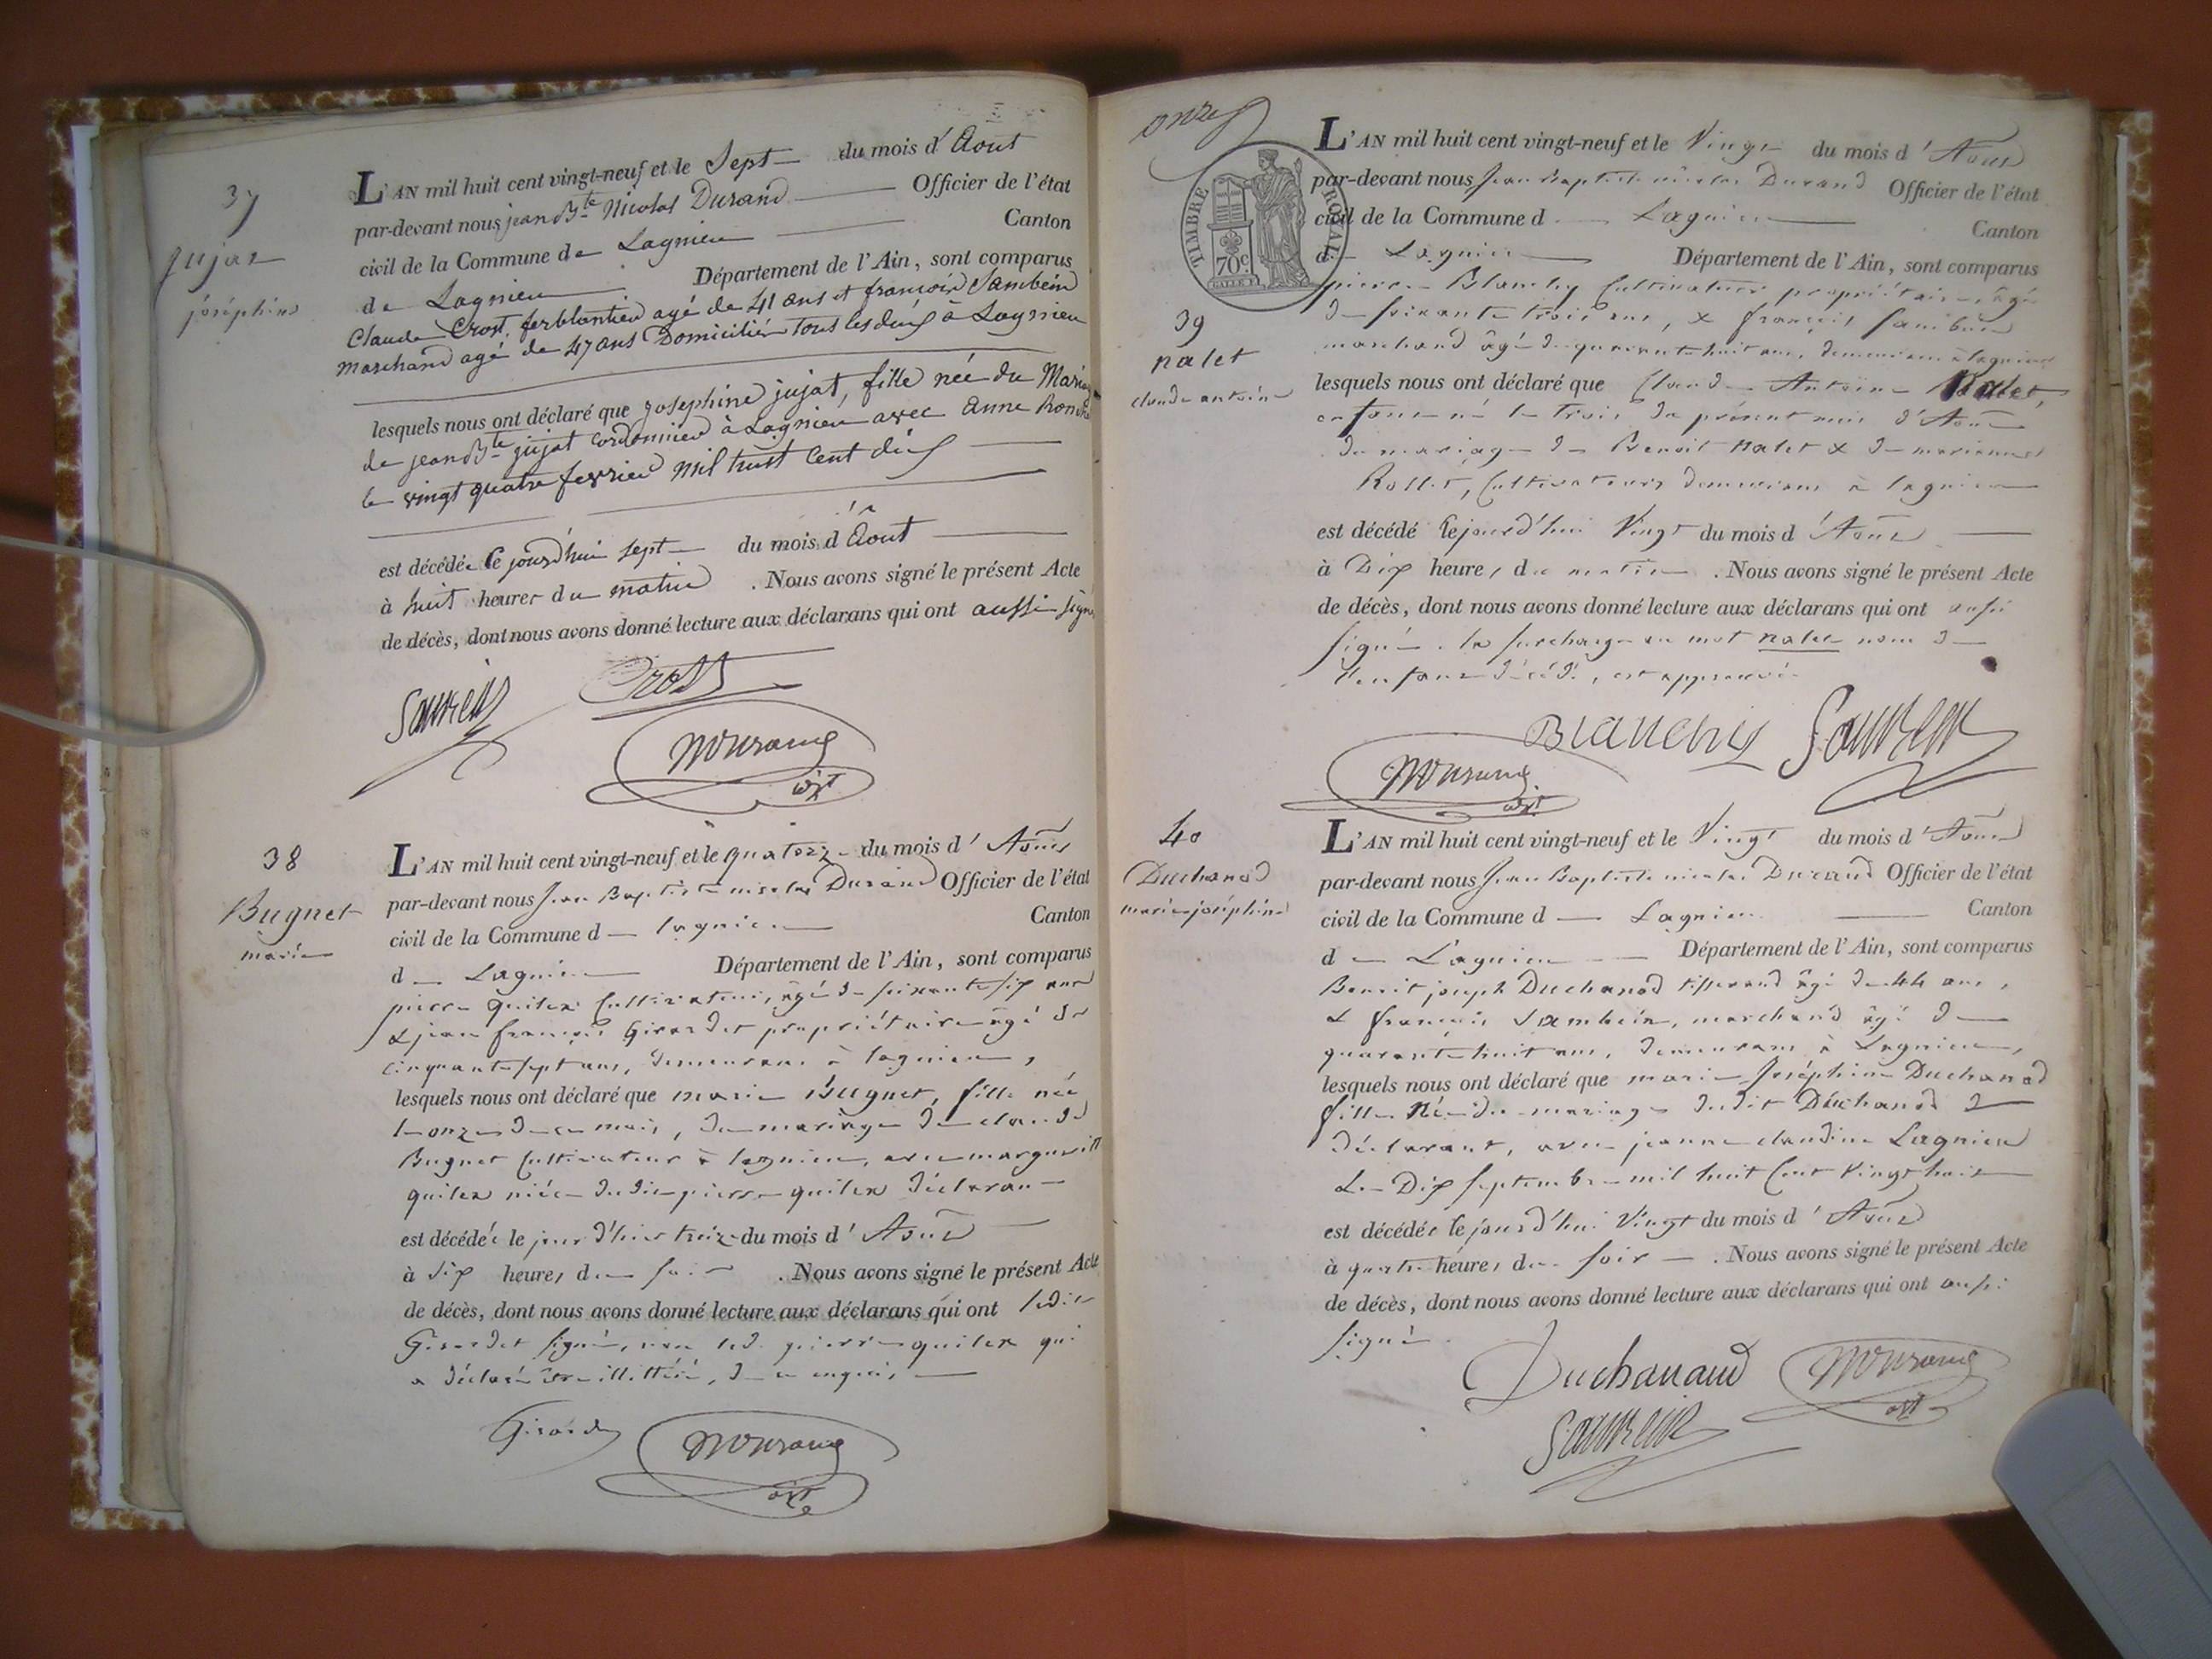 37
jujat
joséphine
L'AN mil huit cent vingt-neuf et le Sept du mois d'Aout
par-devant nous jean Bte Nicolas Durand Officier de l'état
civil de la Commune de Lagnieu Canton
de Lagnieu Département de l'Ain, sont comparus
Claude Crost, ferblantier agé de 41 ans et francois Sambein
marchand agé de 47 ans Domiciliés tous les deux à Lagnieu
lesquels nous ont déclaré que josephine jujat, fille née du Mariage
de jean Bte jujat cordonnier à Lagnieu avec anne
le vingt quatre fevrier mil huit Cent dix
est décédée Ce jourd'hui sept du mois d'Aout
à huit heures du matin . Nous avons signé le présent Acte
de décès, dont nous avons donné lecture aux déclarans qui ont aussi signé
Sambein Crost
NDurand
adjt
38
Bugnet
marie
L'AN mil huit cent vingt-neuf et le quatorze du mois d'Aout
par-devant nous Jean Baptiste nicolas Durand Officier de l'état
civil de la Commune de lagnieu Canton
de Lagnieu Département de l'Ain, sont comparus
pierre quilex Cultivateur, âgé de soixante six ans
& jean françois Girardet propriétaire âgé de
cinquante sept ans, demeurans à lagnieu,
lesquels nous ont déclaré que marie Bugnet, fille née
le onze de ce mois, du mariage de claude
Bugnet Cultivateur à lagnieu, avec marguerite
quilex niéce dudit pierre quilex déclarant
est décédée le jour d'hier treize du mois d'Aout
à dix heures du soir . Nous avons signé le présent Acte
de décès, dont nous avons donné lecture aux déclarans qui ont ledit
Girardet signé, non led. pierre quilex qui
a déclaré être illittéré, de ce enquis,
Girardet NDurand
adjt
onze
TIMBRE ROYAL
70c.
39
nalet
claude antoine
L'AN mil huit cent vingt-neuf et le Vingt du mois d'Aout
par-devant nous Jean Baptiste nicolas Durand Officier de l'état
civil de la Commune d Lagnieu Canton
de Lagnieu Département de l'Ain, sont comparus
pierre Blanchy Cultivateur propriétaire âgé
de soixante trois ans, & françois Sambein
marchand âgé de quarante huit ans, demeurans à lagnieu
lesquels nous ont déclaré que Claude Antoine Nalet,
enfant né le trois du présent mois d'Aout
du mariage de Benoit nalet & de marianne
Rollet, Cultivateurs demeurans à lagnieu
est décédé cejourd'hui Vingt du mois d'Aout
à Dix heures du matin . Nous avons signé le présent Acte
de décès, dont nous avons donné lecture aux déclarans qui ont aussi
signé. la surcharge au mot nalet nom de
l'enfant décédé, est approuvée
Blanchy Sambein
NDurand
adjt
40
Duchanod
marie joséphine
L'AN mil huit cent vingt-neuf et le Vingt du mois d'Aout
par-devant nous Jean Baptiste nicolas Durand Officier de l'état
civil de la Commune d Lagnieu Canton
de Lagnieu Département de l'Ain, sont comparus
Benoit joseph Duchanod tisserand âgé de 44 ans,
& françois Sambein, marchand âgé de
quarante huit ans, demeurans à Lagnieu,
lesquels nous ont déclaré que marie Joséphine Duchanod
fille Née du mariage dudit Duchanod
déclarant, avec jeanne claudine Lagnieu
Le Dix septembre mil huit Cent Vingt huit
est décédée cejourd'hui Vingt du mois d'Aout
à quatre heures du soir . Nous avons signé le présent Acte
de décès, dont nous avons donné lecture aux déclarans qui ont aussi
signé.
Duchanaud NDurand
adjt
Sambein